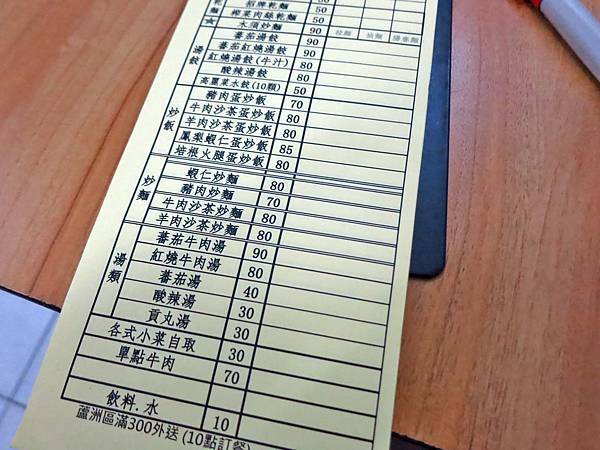 招牌乾麵 50
榨菜肉絲乾麵 50
木須炒麵 90
蕃茄湯餃 90
蕃茄紅燒湯餃 90
紅燒湯餃(牛汁) 80
酸辣湯餃 80
高麗菜水餃(10顆) 50
湯餃
豬肉蛋炒飯 70
牛肉沙茶蛋炒飯 80
羊肉沙茶蛋炒飯 80
鳳梨蝦仁蛋炒飯 85
培根火腿蛋炒飯 80
炒飯
蝦仁炒麵 80
豬肉炒麵 70
牛肉沙茶炒麵 80
羊肉沙茶炒麵 80
炒麵
蕃茄牛肉湯 90
紅燒牛肉湯 80
蕃茄湯 40
酸辣湯 30
貢丸湯 30
湯類
各式小菜自取 30
單點牛肉 70
飲料.水 10
蘆洲區滿300外送 (10點訂餐)